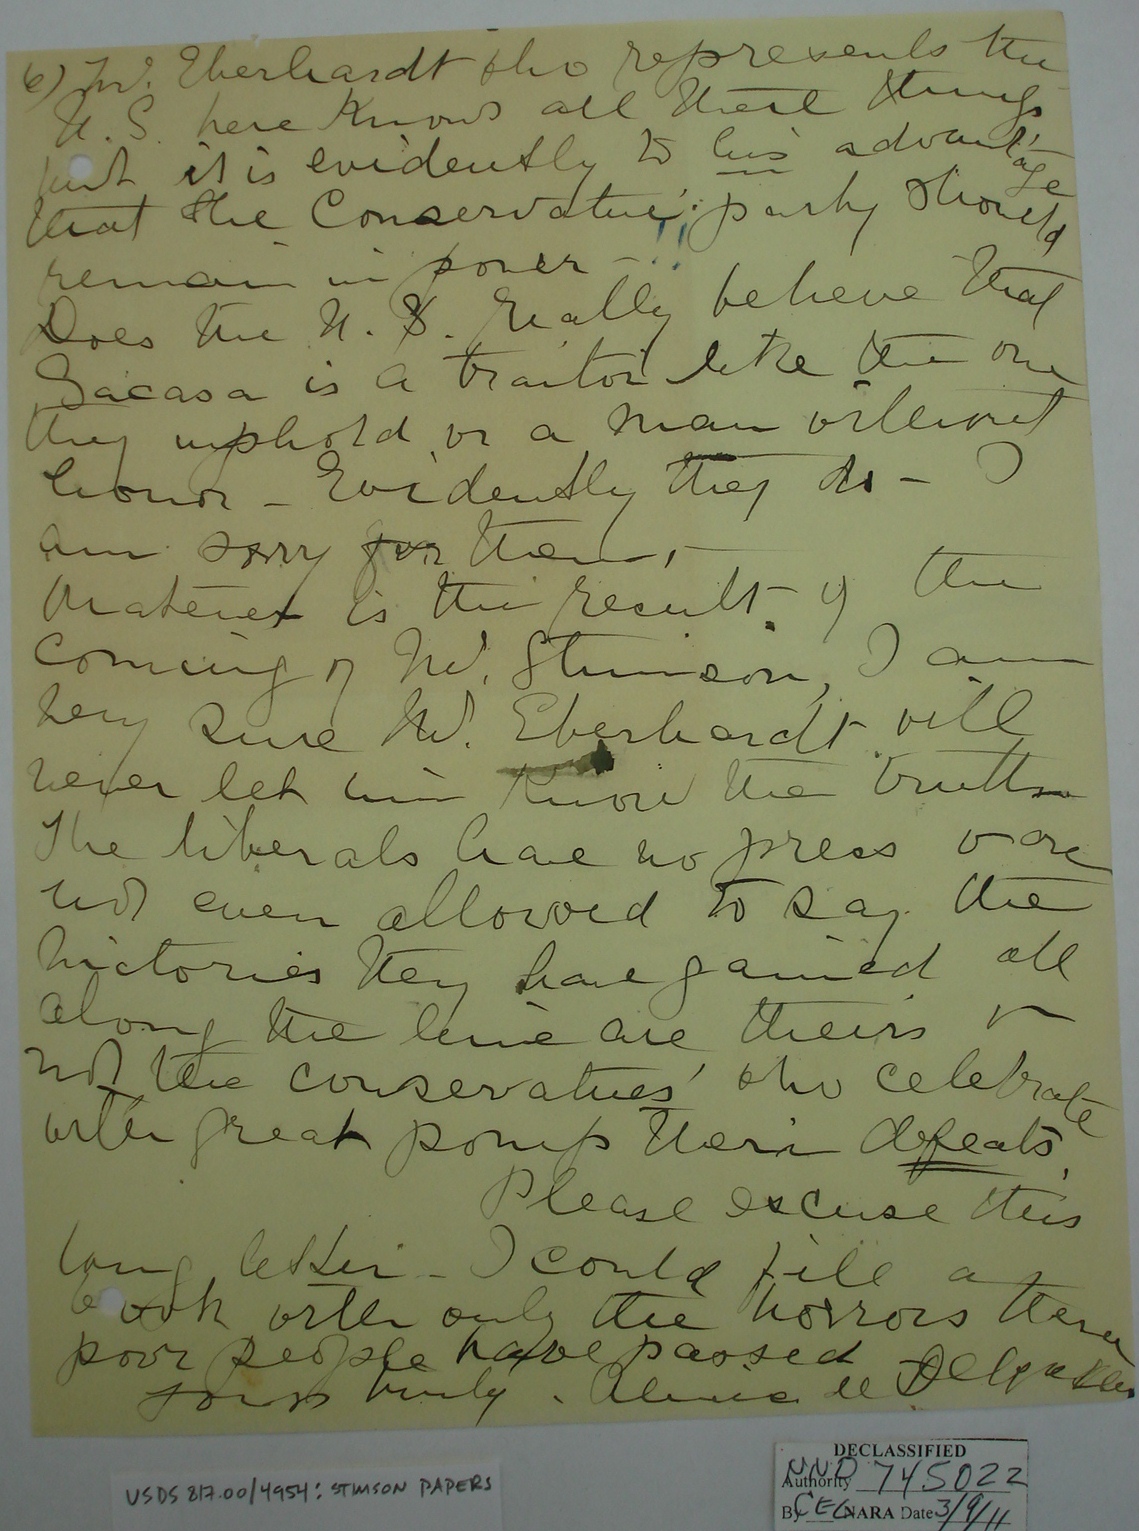 6) Mr. Eberhardt who represents the
U.S. here knows all these things
but it is evidently to his advantage
that the Conservative party should
remain in power –
Does the U.S. really believe that
Sacasa is a traitor like the one
they uphold or a man without
honor – Evidently they do – I
am sorry for them.
Whatever is the result of the
coming of Mr. Stimson, I am
very sure Mr. Eberhardt will
never let him know the truth
The liberals have no press & are
not even allowed to say the
victories they have gained all
along the line are theirs &
not the conservatives' who celebrate
with great pomp their defeats.
Please excuse this
long letter – I could fill a
book with only the horrors these
poor people have passed
Yours truly. de
USDS 817.00/4954: STIMSON PAPERS
DECLASSIFIED
Authority NND 745022
By CEG NARA Date 3/9/11